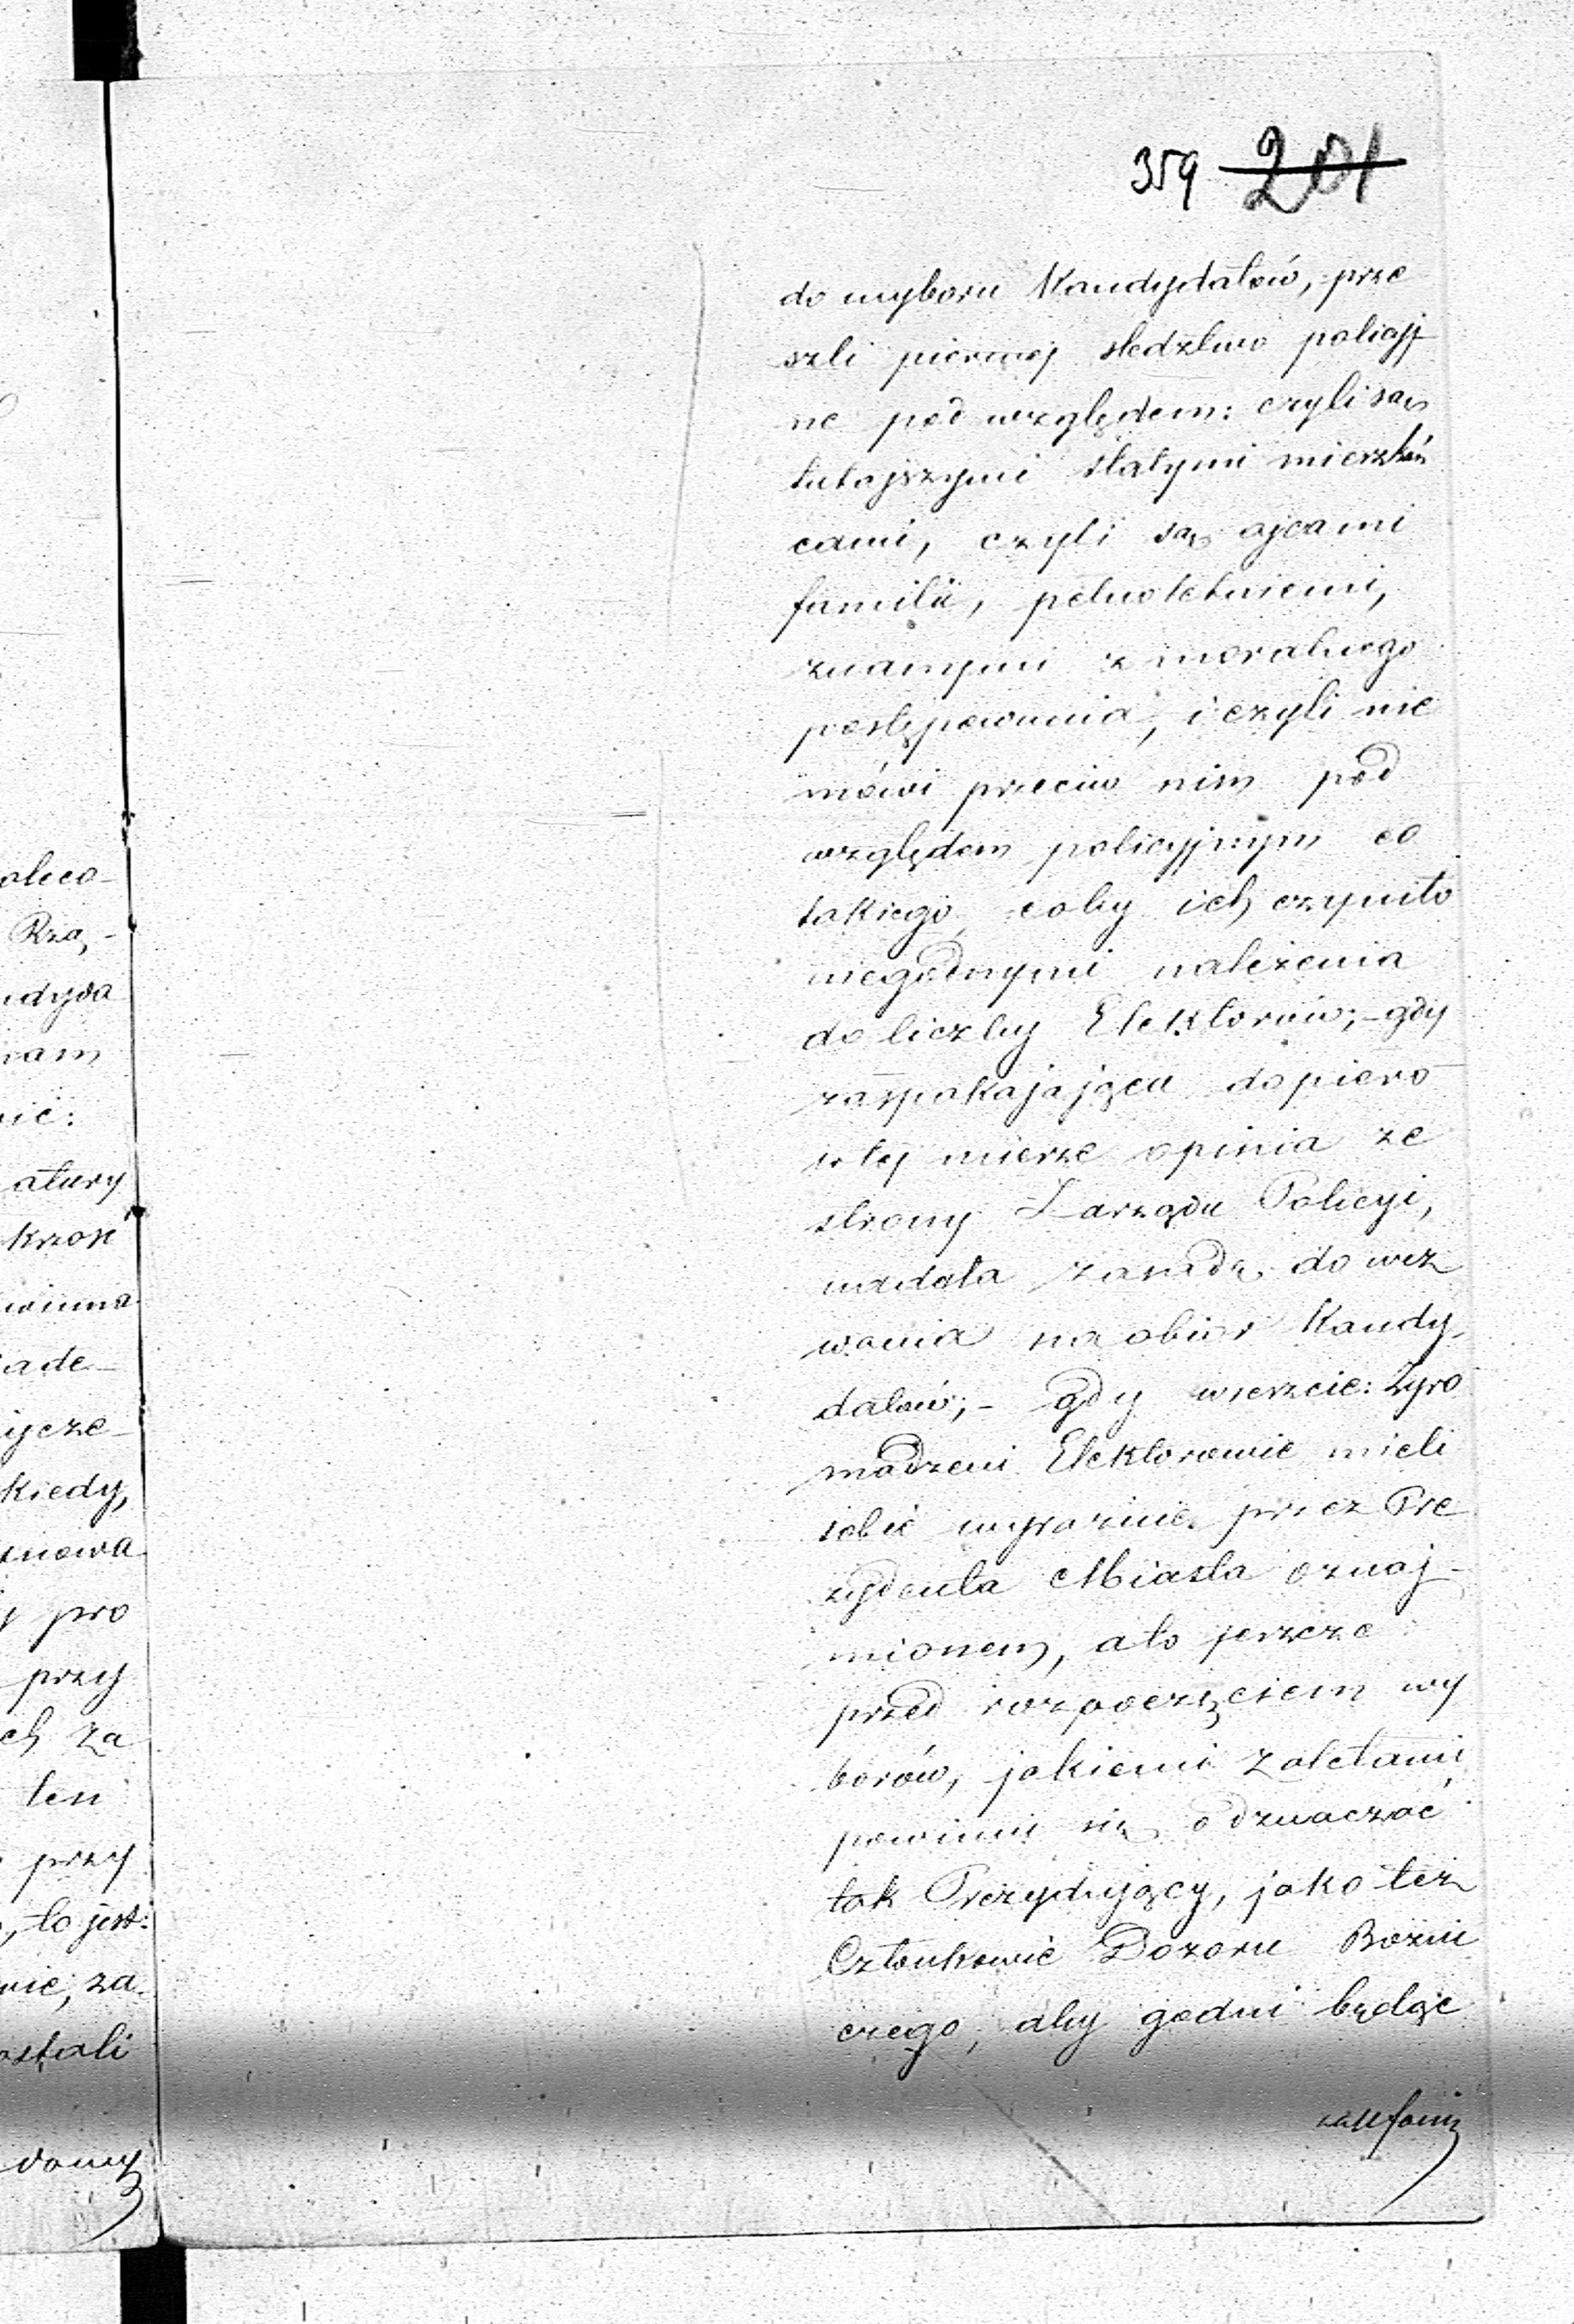 359 201
do wyboru Kandydatów, prze
szli pierwej sledztwo policyj
ne pod względem: czyli są
tutajszymi stałymi mieszkań
cami, czyli są ojcami
familii, pełnoletniemi,
znanymi z moralnego
postępowania, i czyli nie
mówi przeciw nim pod
względem policyjnym co
takiego coby ich czyniło
niegodnymi należenia
do liczby Elektorów; - gdy
zaspakajająca dopiero
w tej mierze opinia ze
strony Zarządu Policyi,
nadała zasadę do wez
wania na obiór Kandy
datów; - gdy wreszcie: Zgro
madzeni Elektorowie mieli
sobie wyraznie przez Pre
zydenta Miasta oznaj-
mionem, a to jeszcze
przed rozpoczęciem wy
borów, jakiemi zaletami
powinni się odznaczać
tak Prezydujący, jako też
Członkowie Dozoru Bożni
czego, aby godni będąc
zaufania
oleco-
Rzą,-
ndyda
nam
nić:
atury
kroń
winna
iade-
ycze-
kiedy,
znowa
y pro
przy
ch za
ten
przy
, to jest:
nie, za-
ostali
domy